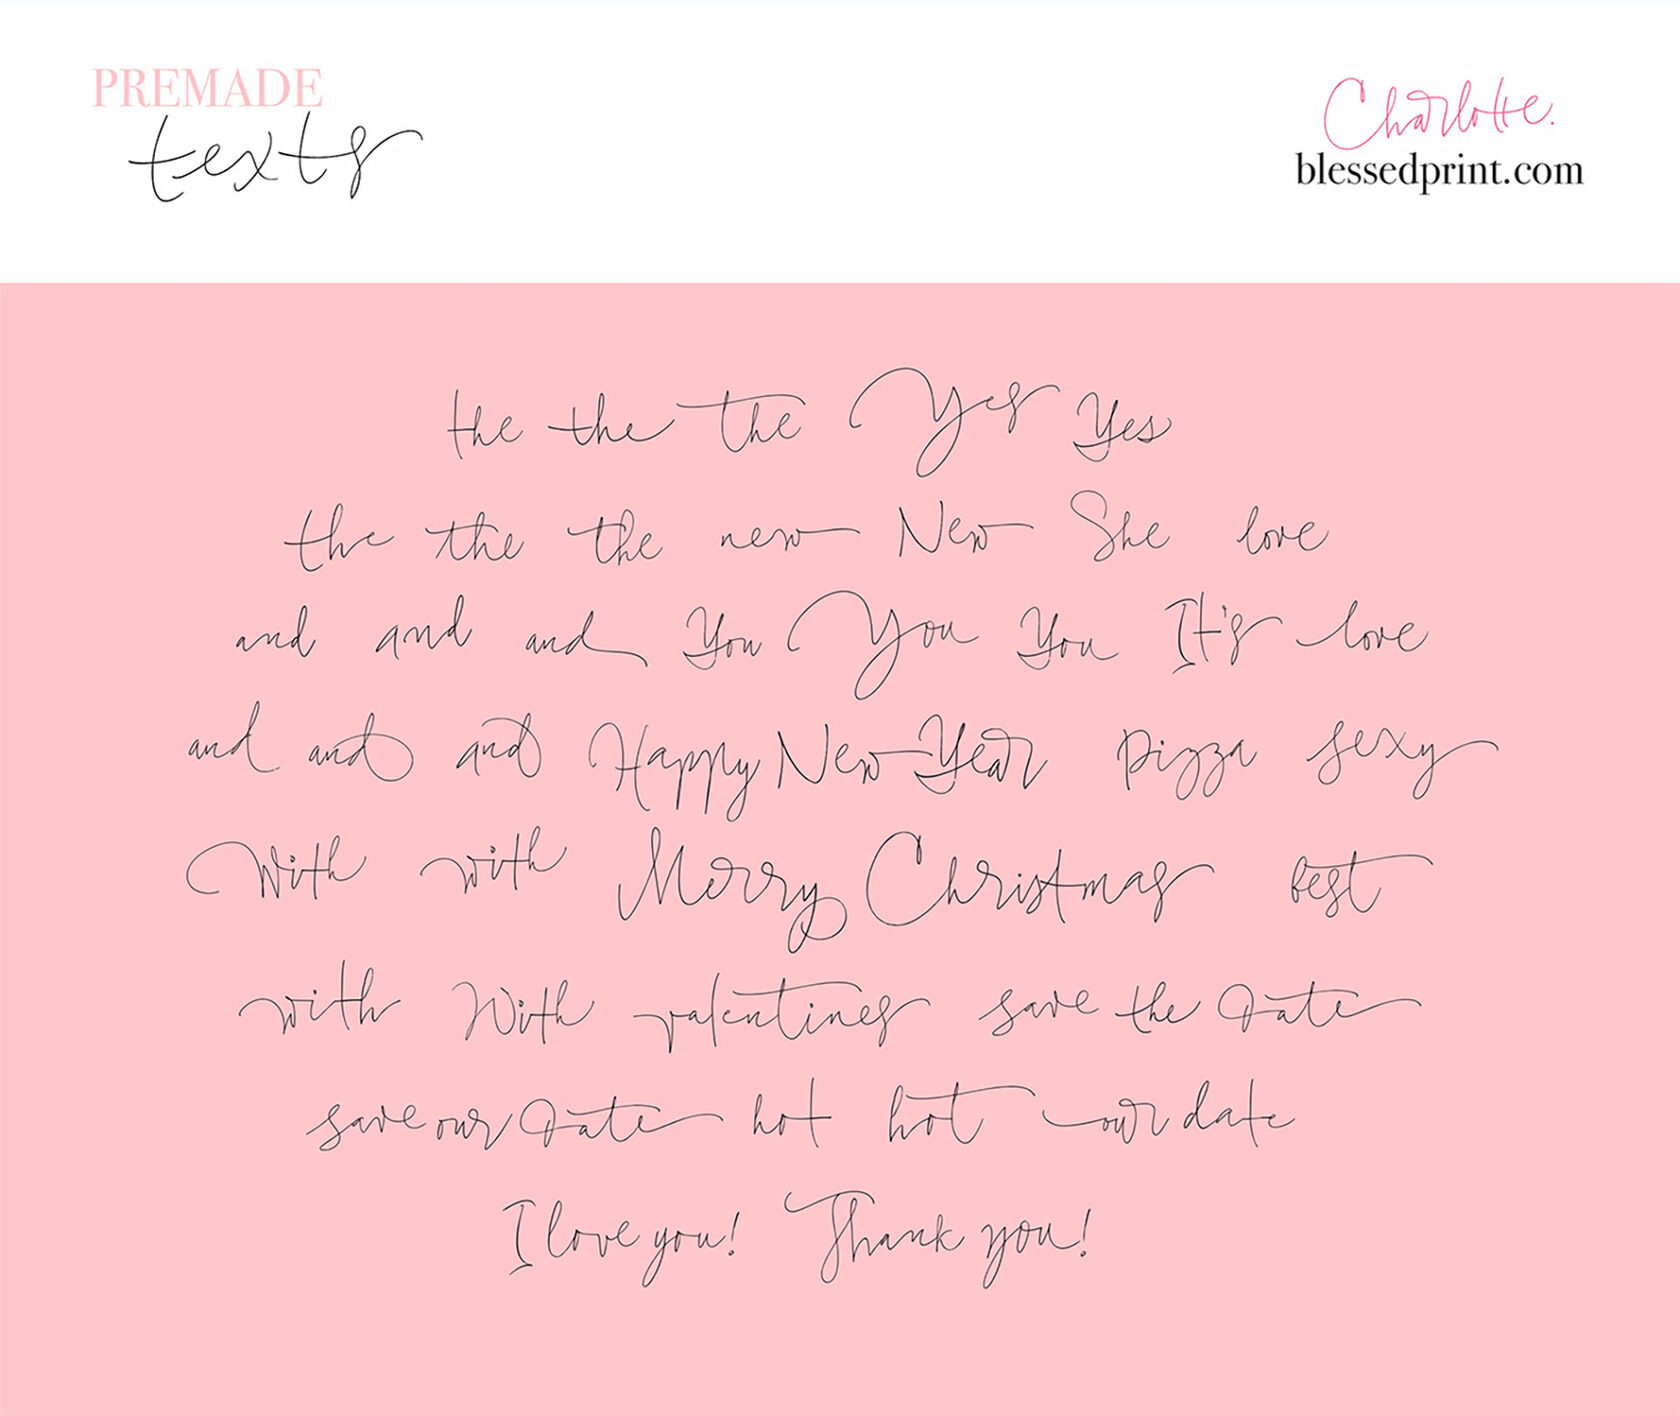 PREMADE
texts
Charlotte.
blessedprint.com
the the the Yes Yes
the the the new New She love
and and and You You You It's love
and and and Happy New Year pizza sexy
With with Merry Christmas best
with With valentines save the date
save our date hot hot our date
I love you! Thank you!